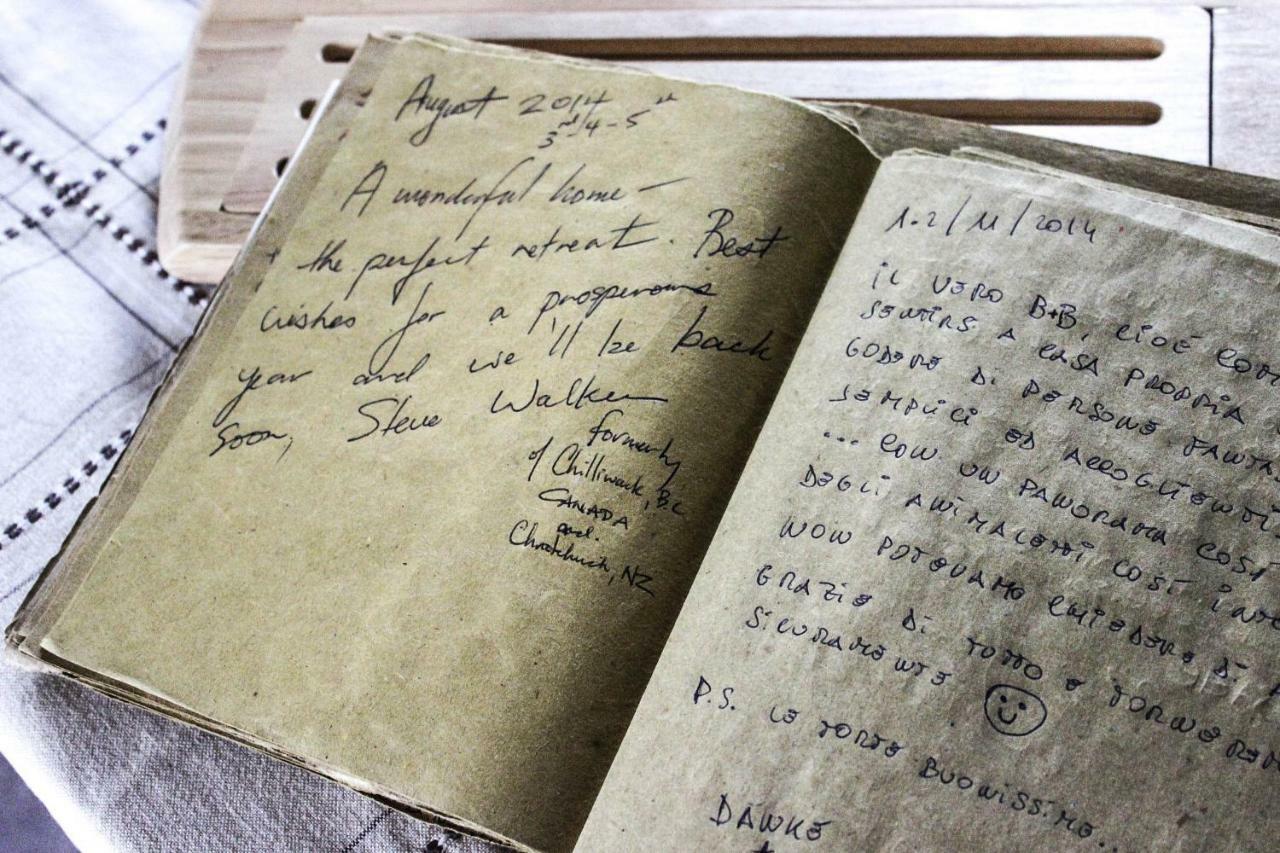 August 2014
3rd/4-5th
A wonderful home –
the perfect retreat. Best
wishes for a prosperous
year and we'll be back
soon, Steve Walker
formerly
of Chilliwack, BC
CANADA
and
Christchurch, NZ
1-2/11/2014
IL VERO B+B, CIOÉ COM
SENTIRSI A CASA PROPRIA
GODERE DI PERSONE FANTA
SEMPLICI ED ACCOGLIENTI
... CON UN PANORAMA COSÍ
DEGLI ANIMALETTI COSÍ INTE
NON POTEVAMO CHIEDERE DI
GRAZIE DI TUTTO E TORNEREM
SICURAMENTE
P.S. LE TORTE BUONISSIME..
DANKE